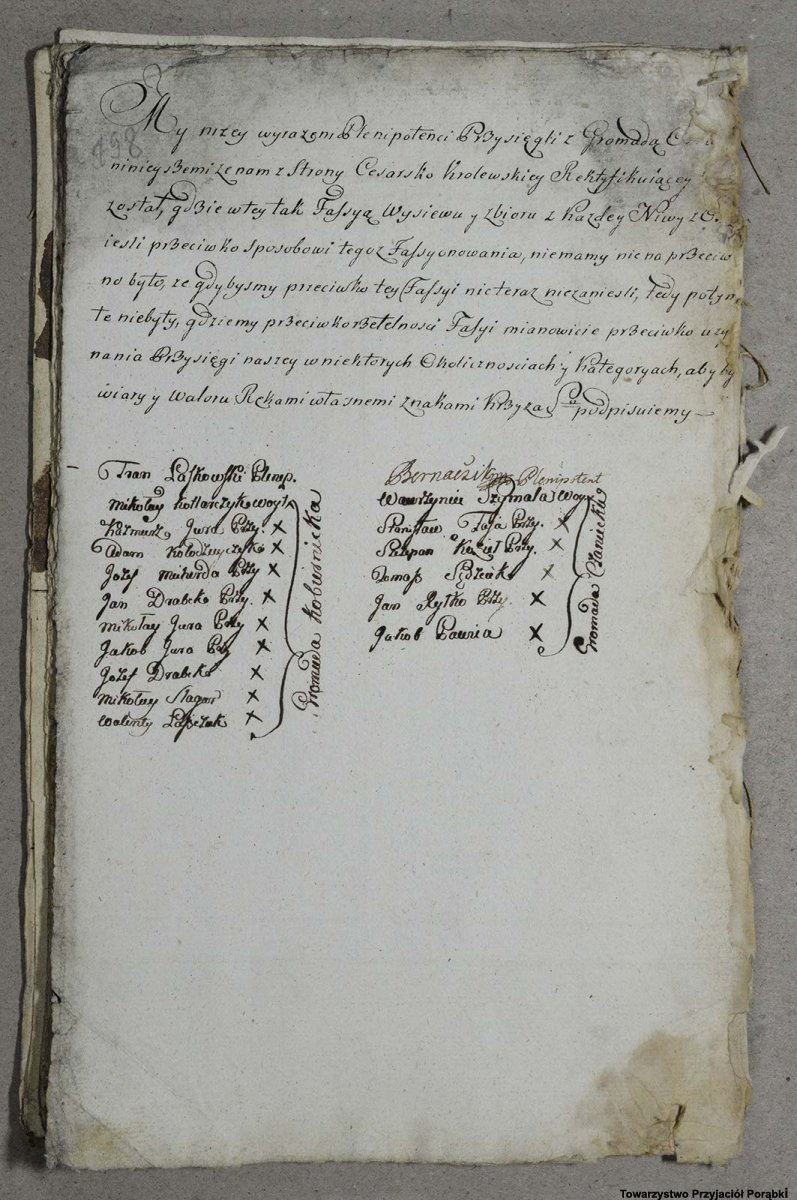 198
My niżey wyrażeni Plenipotenci Przysięgli z Gromadą
niniejszemi że nam z Strony Cesarsko Krolewskiey Rektyfikuiącey
został, gdzie w tey tak Fassyą Wysiewu y zbioru z Każdey Niwy z
iesli przeciwko sposobowi tegoż Fassyonowania, niemamy nic na przeciw
no było, że gdybysmy przeciwko tey Fassyi nic teraz niezaniesli, tedy potym
te niebyły, gdzie my przeciwko rzetelnosci Fasyi mianowicie przeciwko uzy
nania Przysięgi naszey w niektorych Okolicznosciach y Kategoryach, aby by
wiary y waloru Rękami własnemi znakami Krzyza podpisuiemy
Fran Laskowski Plenip.
Mikołay Kollarczyk woyt
Kazmierz Jura Przy. x
Adam Kołodzieyczyk x
Jozef Mikierda Przy x
Jan Drabek Przy. x
Mikołay Jura Przy x
Jakob Jura Przy x
Jozef Drabek x
Mikołay x
Walenty x
Gromada Kobiernicka
Bernaczik Plenipotent
Wawrzyniec Szymala Woy.
Stanisław Zaja Przy. x
Szczepan Kozieł Przy. x
Tomasz x
Jan Rytko Przy. x
Jakob Pawria x
Gromada Czaniecka
Towarzystwo Przyjaciół Porąbki